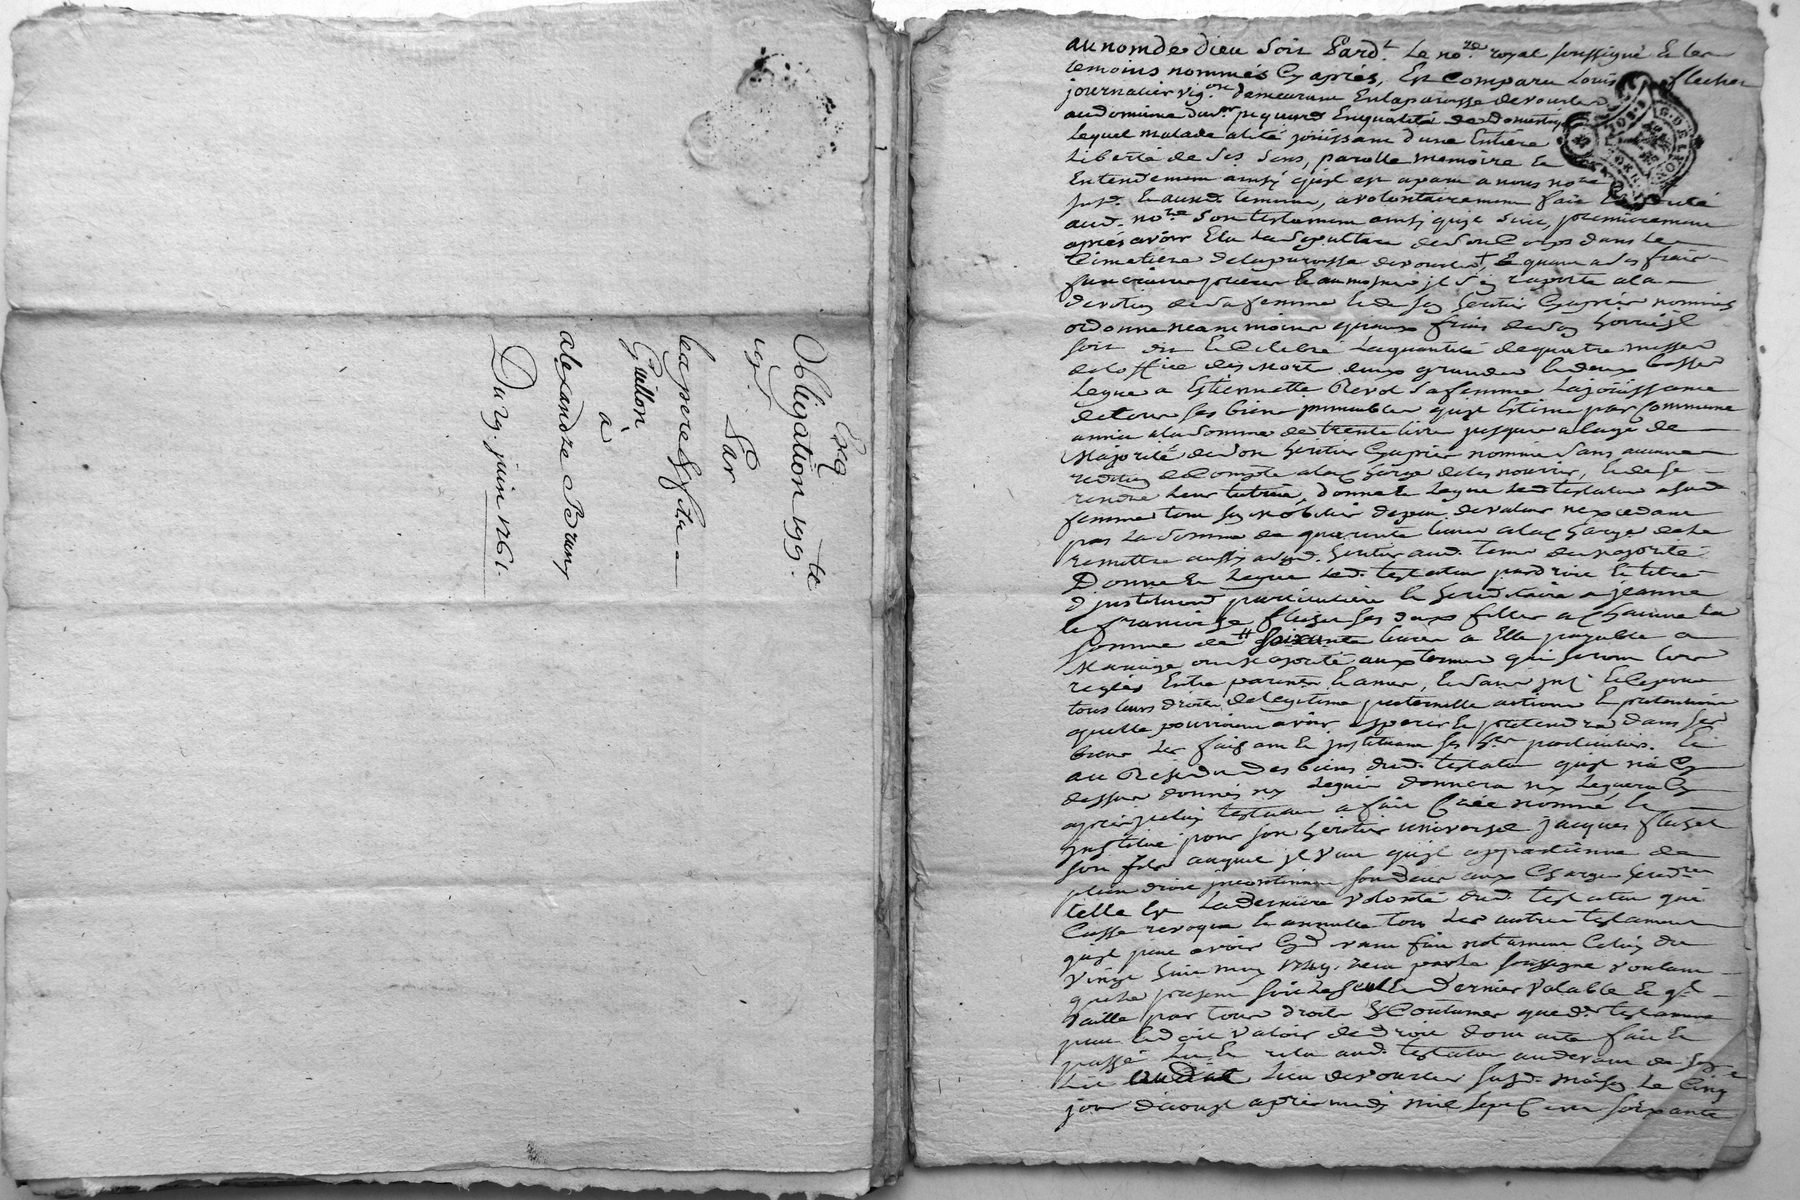 Exq
Obligation 199.te
19#.
Par
Gaillon
à
alexandre Brunz
Du 19. juin 1761.
au nom de dieu soit Pard.t Le no.re royal soussigné & les
temoins nommés Cy aprés, Est Comparu Louis fleuhet
journalier vig.on demeurant En la paroisse de vourles
au domaine du s.r en qualité de domestiq
Lequel malade alité jouissant d'une Entiére
Liberté de Ses Sens, parolle memoire Et
Entendement ainsy quil est aparu a nous no.re
Susd. Et auxd. temoins, a volontairement fait Et dicté
aud. no.re Son testament ainsy quil suit, premierement
aprés avoir Elu La Sepulture de Son Corps dans Le
Cimetiere de la paroisse de vourles Et quant a Ses frais
funeraires prieres Et aumosnes il S'en raporte a la
devotion de Sa femme Et de Son heritier Cy aprés nommés
ordonne neanmoins quaux frais de Son hoirie il
soit dit Et Celebré La quantité de quatre messes
de Loffice des Morts deux grandes Et deux basses
Legue a Estiennette Revol Sa femme La jouissance
de tous Ses biens immeubles quil Estime par Commune
année a la Somme de trente livres jusques a lage de
Majorité de Son heritier Cy aprés nommé Sans aucune
redition de Compte a la Charge de les nourrir, Et de Se
rendre Leur tutrice, Donne Et Legue Led. testateur a Sad.
femme tout Son Mobilier de peu de valeur nexcedant
pas La Somme de quarente livres a la Charge de Le
remettre aussy a Sond. heritier aud. tems de majorité
Donne Et Legue Led. testateur par droit Et titre
d'institution particuliere Et hereditaire a jeanne
Et françoise fleuhet Ses deux filles a Chacune La
Somme de Soixante livres a Elle payable a
Mariage ou Majorité aux termes qui Seront lors
reglés Entre parents Et amis, Et
tous leurs droits de legitime paternelle actions Et pretentions
quelle pourroient avoir esperer Et pretendre dans Ses
biens Les faisant Et instituant Ses h.res particulieres. Et
au Residu des biens dud. testateur quil n'a Cy
dessus donnés ny Legués donnera ny Leguera Cy
aprés jceluy testateur a fait Créé nommé Et
jnstitué pour Son heritier universel jacques fleuhet
Son fils auquel il veut quil appartienne de
plein droit jncontinent Son deces aux Charges heredres
telle Est La derniere volonté dud. testateur qui
Casse revoque Et annulle tous Les autres testaments
quil peut avoir Cy d.vant fait notament Celuy du
vingt huit may receu par Le soussigné voulant
que Le present Soit Le Seul Et Dernier valable Et q.l
vaille par tous droits & Coutumes que d.r testament
peut Et doit valoir de droit dont acte fait Et
passé Lu Et relu aud. testateur au devant de Son
Lit audit Lieu de vourles Susd. maison Le Cinq
jour d'aoust aprés midy mil Sept Cent Soixante